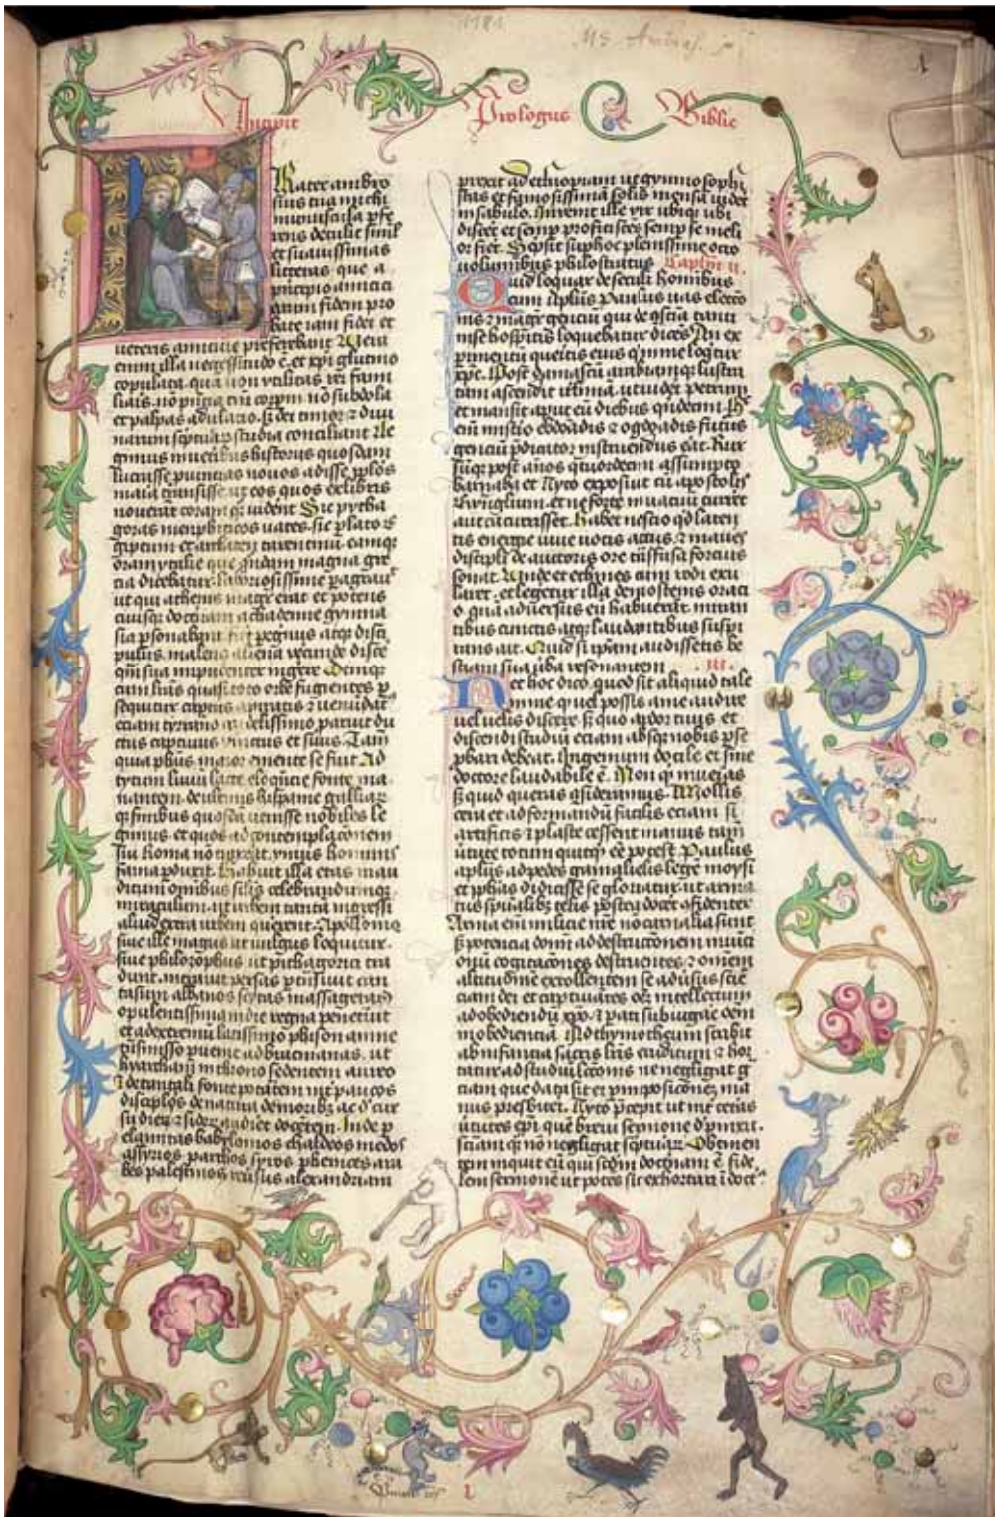 Incipit Prologus Biblie
Frater ambro
sius tua michi
munuscula pfe
rens detulit simul
et suavissimas
litteras que a
principio amicici
arum fidem pro
bate iam fidei et
veteris amicicie preferebant Vera
enim illa necessitudo ē et xpi glutino
copulata qua non vtilitas rei fami
liaris nō pñcia tm̄ corpm nō subdola
et palpas adulacio ß dei timor ⁊ divi
narum scpturaꝝ studia conciliant Le
gimus in veteribus historiis quosdam
lustrasse puincias novos adisse pplos
maria transisse ut eos quos ex libris
noverāt coram qꝫ viderent Sic pytha
goras memphiticos vates sic plato
egiptum et architam tarentinū eamqꝫ
oram ytalie que quōdam magna gre
cia dicebatur laboriosissime pagravit
ut qui athenis magr erat et potens
cuiusqꝫ doctrinam achademie gymna
sia psonabant fieret pegrinus atqꝫ disci
pulus malens aliena verecunde disce
qm̄ sua impudenter ingere Deniqꝫ
cum lrās quasi toto orbe fugientes p
sequitur captus a piratis ⁊ venūdat
eciam tyranno crudelissimo paruit du
ctus captivus vinctus et servus Tam
quia phus maior emente se fuit Ad
tytum livium lacteo eloqūcie fonte ma
nantem de ultimis hispanie galliarꝫ
qꝫ finibus quosdā venisse nobiles le
gimus et quos ad contemplacōnem
sui Roma nō traxerat vnius hominis
fama pduxit Habuit illa etas inau
ditum omnibus sclis celebrandumqꝫ
miraculum ut urbem tantā ingressi
aliud extra urbem quererent Apolloniꝰ
sive ille magus ut vulgus loquitur
sive philosophus ut pithagorici tra
dunt intravit persas ptransivit cau
casum albanos scitas massagetas
opulentissima indie regna penetravit
et ad extremū latissimo phison amne
trāsmisso pvenit ad bracmanas ut
hyarcham in throno sedentem aureo
⁊ de tantali fonte potātem int paucos
discipulos de natura de moribꝫ ac d' cur
su dieꝝ ⁊ siderꝝ audiret docētem Inde p
elamitas babylonios chaldeos medos
assyrios parthos syros phenices ara
bes palestinos revsus alexandriam
prexit ad ethiopiam ut gymnosophi
stas et famosissimā solis mensā videt
in sabulo Invenit ille vir ubiqꝫ ubi
disceret et semp proficiscēs semp se meli
or fieret Scpsit sup hoc plenissime octo
voluminibus philostratus Caplm ii
Quid loquar de secli hominibus
cum aplus Paulus vas eleccō
nis ⁊ magr gencium qui de cōsciā tanti
in se hospitis loquebatur dicēs An ex
perimentū queritis eius q in me loqtur
xpc Post damascū arabiamqꝫ lustra
tam ascendit ierlimā ut videret petrum
et mansit aput eū diebus quidecim Hoc
eni misterio ebdoadis ⁊ ogdoadis futurus
gencium pdicator instruendus erat Rur
sumqꝫ post annos qtuordecim assumpto
barnaba et tyto exposuit cū apostolis
evangelium et ne forte in vacuum curreret
aut cucurrisset Habet nescio qd laten
tis energie vive vocis actus ⁊ in aures
discipli de auctoris ore trāsfusa forcius
sonat Unde et eschines cum rodi exu
laret et legeretur illa demostenis oraci
o quā adversus eū habuerat miran
tibus cunctis atqꝫ laudantibus suspi
rans ait Quid si ipsam audissetis be
stiam sua verba resonantem iii
Nec hoc dico quod sit aliquid tale
in me q vel possis a me audire
vel velis discere ß quo ardor tuus et
discendi studiū eciam absqꝫ nobis p se
phari debeat Ingenium docile et sine
doctore laudabile ē Non q invenias
ß quid queras qsideramus Mollis
cera et ad formandū facilis eciam si
artificis ⁊ plaste cessent manus tam̄
virtute totum quitqd eē potest Paulus
aplus ad pedes gamalielis legē moysi
et pphās didicisse se gloriatur ut arma
tus spualibꝫ telis postea docet cōfidenter
Arma eni milicie nre nō carnalia sunt
ß potencia domi ad destructionem munici
onū cogitacōnes destruentes ⁊ omnem
altitudine extollentem se adversus scie
ciam dei et captivātes oēm intellectum
ad obediendū xpo ⁊ parati subiugare oēm
inobedienciā Ad thymotheum scribit
ab infancia sacris lris eruditum ⁊ hor
tatur ad studiū lectionis ne negligat g
ciam que data sit ei p imposicōneꝫ ma
nus presbiteri Tyto pcepit ut int ceteras
virtutes epi quē brevi sermone depinxit
sciam qꝫ nō negligat scripturaꝝ Obtinen
tem inquit eū qui scdm doctrinam ē fide
lem sermonē ut potens sit exhortari ī doct